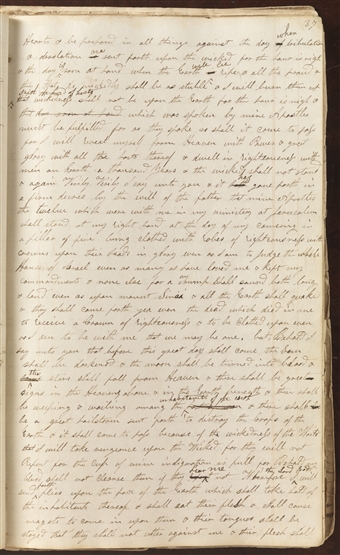 37
when
Hearts & be prepared in all things against the day of tribulation
& desolation are sent forth upon the wicked for the hour is nigh
& the day soon at hand when the Earth is ripe & all the proud &
they that do wickedly shall be as stubble & I will burn them up
saith the Lord of hosts
that wickedness shall not be upon the Earth for the hour is nigh &
that which was spoken by mine Apostles
must be fulfilled for as they spoke so shall it come to pass
for I will reveal myself from Heaven with Power & great
glory with all the hosts thereof & dwell in righteousness with
men on Earth a thousand years & the wicked shall not stand
& again Verily Verily I say unto you & it hath gone forth in
a firm decree by the will of the father that mine Apostles
the twelve which were with me in my ministry at Jerusalem
shall stand at my right hand at the day of my coming in
a pillar of fire being clothed with robes of righteousness with
crowns upon their heads in glory even as I am to judge the whole
house of Israel even as many as have loved me & kept my
commandments & none else for a trump shall sound both long
& loud even as upon mount Sinai & all the Earth shall quake
& they shall come forth yea even the dead which died in me
to receive a crown of righteousness & to be clothed upon even
as I am to be with me that we may be one but Behold I
say unto you that before this great day shall come the Sun
shall be darkened & the moon shall be turned into blood &
the stars shall fall from Heaven & there shall be greater
signs in the Heaven above & in the Earth beneath & there shall
be weeping & wailing among the
inhabitants of the
& there shall
be a great hailstorm sent forth to destroy the crops of the
Earth & it shall come to pass because of the wickedness of the World
that I will take vengeance upon the Wicked for they will not
Repent for the cup of mine indignation is full for Behold
my blood shall not cleanse them if they hear me not Wherefore I
the Lord God
will
send forth
flies upon the face of the Earth which shall take hold of
the inhabitants thereof & shall eat their flesh & shall cause
magots to come in upon them & their tongues shall be
stayed that they shall not utter against me & their flesh shall